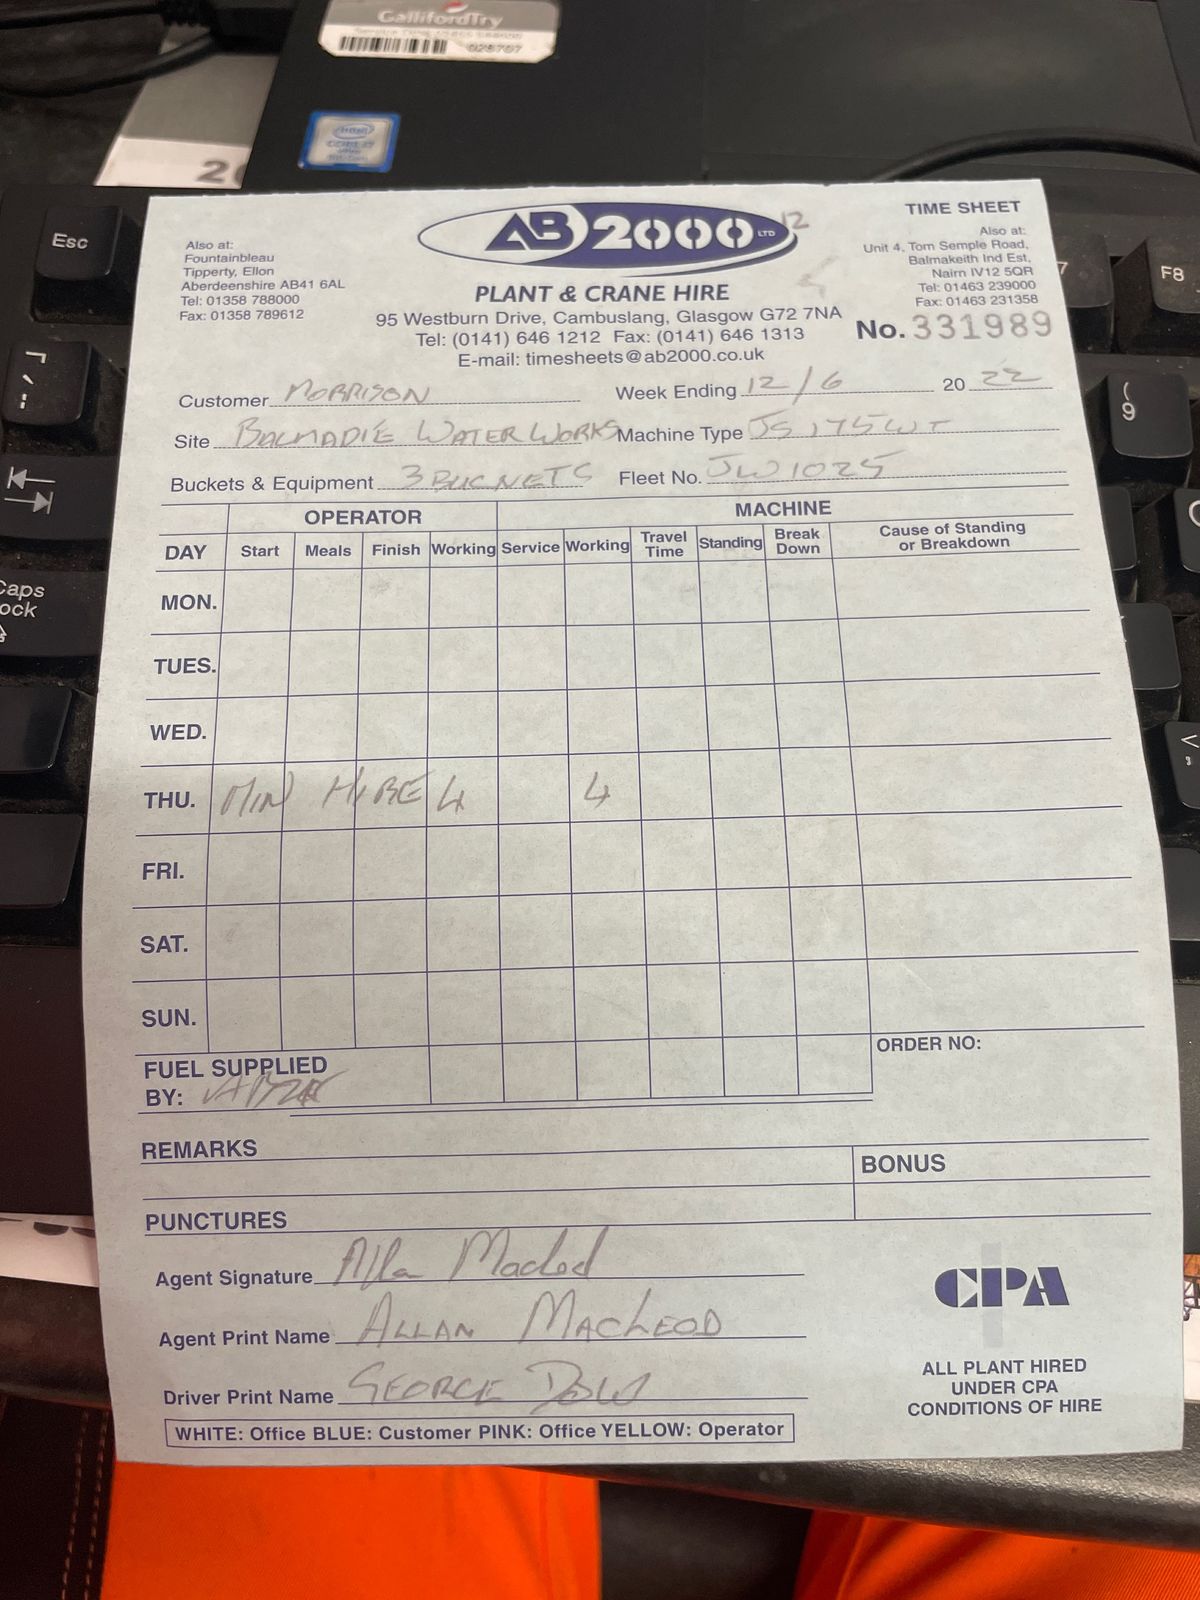 GallifordTry
026707
Esc
F8
9
Caps
TIME SHEET
AB 2000 LTD
12
PLANT & CRANE HIRE
Also at:
Fountainbleau
Tipperty, Ellon
Aberdeenshire AB41 6AL
Tel: 01358 788000
Fax: 01358 789612
95 Westburn Drive, Cambuslang, Glasgow G72 7NA
Tel: (0141) 646 1212 Fax: (0141) 646 1313
E-mail: timesheets@ab2000.co.uk
Also at:
Unit 4, Tom Semple Road,
Balmakeith Ind Est,
Nairn IV12 5QR
Tel: 01463 239000
Fax: 01463 231358
No. 331989
Customer MORRISON Week Ending 12/6 20 22
Site BALMADIE WATER WORKS Machine Type JS175WT
Buckets & Equipment 3 BUCKETS Fleet No. JW1025
OPERATOR MACHINE
DAY Start Meals Finish Working Service Working Travel Time Standing Break Down Cause of Standing or Breakdown
MON.
TUES.
WED.
THU. MIN HIRE 4 4
FRI.
SAT.
SUN.
FUEL SUPPLIED
BY:
ORDER NO:
REMARKS
BONUS
PUNCTURES
Agent Signature Allan Macleod
Agent Print Name ALLAN MACLEOD
Driver Print Name GEORGE DOW
WHITE: Office BLUE: Customer PINK: Office YELLOW: Operator
CPA
ALL PLANT HIRED
UNDER CPA
CONDITIONS OF HIRE